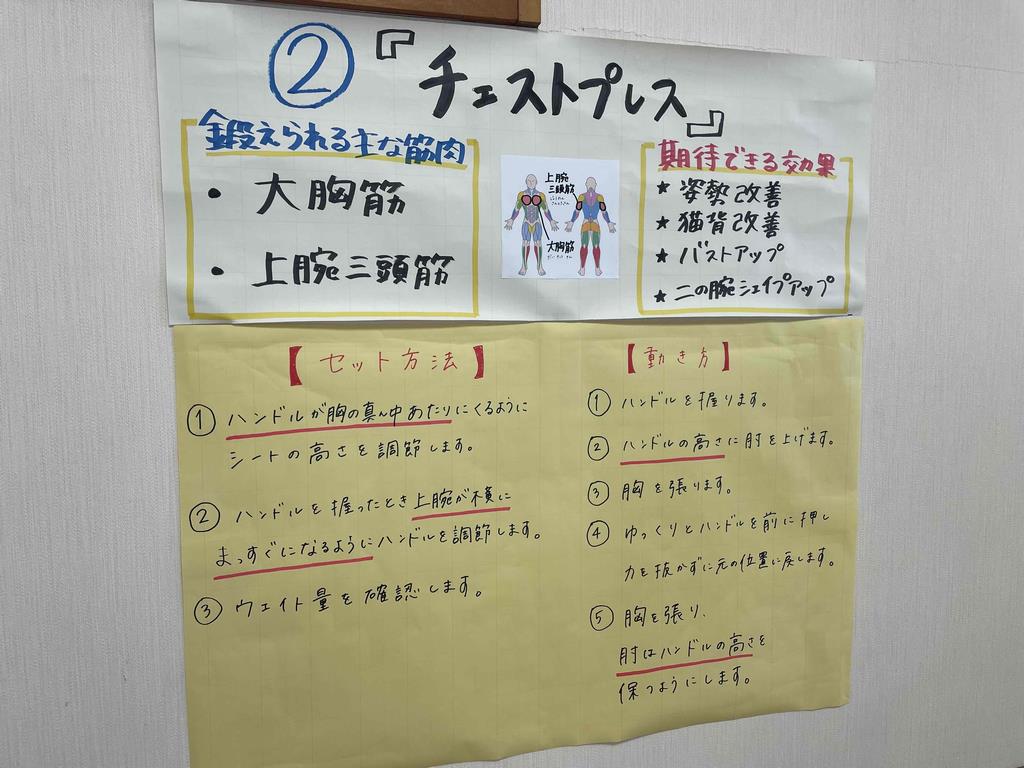 ② 『チェストプレス』
鍛えられる主な筋肉
・大胸筋
・上腕三頭筋
上腕
三頭筋
大胸筋
期待できる効果
★ 姿勢改善
★ 猫背改善
★ バストアップ
★ 二の腕シェイプアップ
【セット方法】
① ハンドルが胸の真ん中あたりにくるように
シートの高さを調節します。
② ハンドルを握ったとき上腕が横に
まっすぐになるようにハンドルを調節します。
③ ウェイト量を確認します。
【動き方】
① ハンドルを握ります。
② ハンドルの高さに肘を上げます。
③ 胸を張ります。
④ ゆっくりとハンドルを前に押し
力を抜かずに元の位置に戻します。
⑤ 胸を張り、
肘はハンドルの高さを
保つようにします。